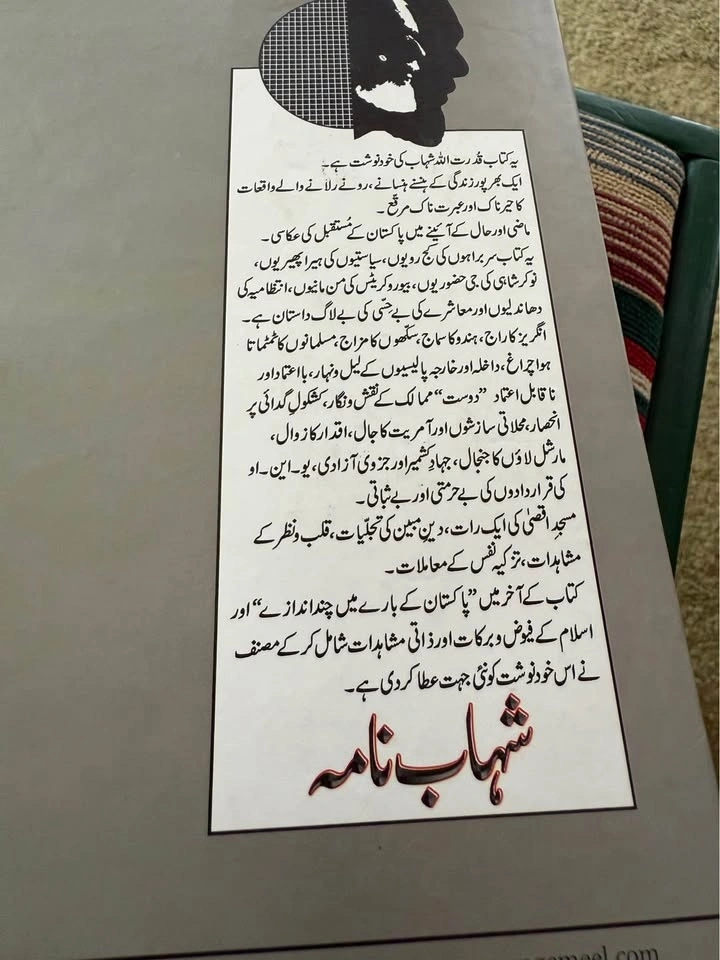 یہ کتاب قدرت اللہ شہاب کی خود نوشت ہے۔
ایک بھرپور زندگی کے ہنسنے ہنسانے، رونے رلانے والے واقعات
کا حیرناک اور عبرت ناک مرقع۔
ماضی اور حال کے آئینے میں پاکستان کے مُستقبل کی عکاسی۔
یہ کتاب سربراہوں کی کج رویوں، سیاستیوں کی ہیرا پھیریوں،
نوکر شاہی کی جی حضوریوں، بیوروکریٹس کی من مانیوں، انتظامیہ کی
دھاندلیوں اور معاشرے کی بے حِسّی کی بے لاگ داستان ہے۔
انگریز کا راج، ہندو کا سماج، سکّھوں کا مزاج، مسلمانوں کا ٹمٹماتا
ہوا چراغ، داخلہ اور خارجہ پالیسیوں کے لیل و نہار، بااعتماد اور
ناقابل اعتماد "دوست" ممالک کے نقش و نگار، کشکولِ گدائی پر
انحصار، محلاتی سازشوں اور آمریت کا جال، اقدار کا زوال،
مارشل لاؤں کا جنجال، جہادِ کشمیر اور جزوی آزادی، یو۔این۔او
کی قراردادوں کی بے حرمتی اور بے ثباتی۔
مسجدِ اقصیٰ کی ایک رات، دینِ مبین کی تجلّیات، قلب و نظر کے
مشاہدات، تزکیہ نفس کے معاملات۔
کتاب کے آخر میں "پاکستان کے بارے میں چند اندازے" اور
اسلام کے فیوض و برکات اور ذاتی مشاہدات شامل کر کے مصنف
نے اس خود نوشت کو نئی جہت عطا کر دی ہے۔
شہاب نامہ